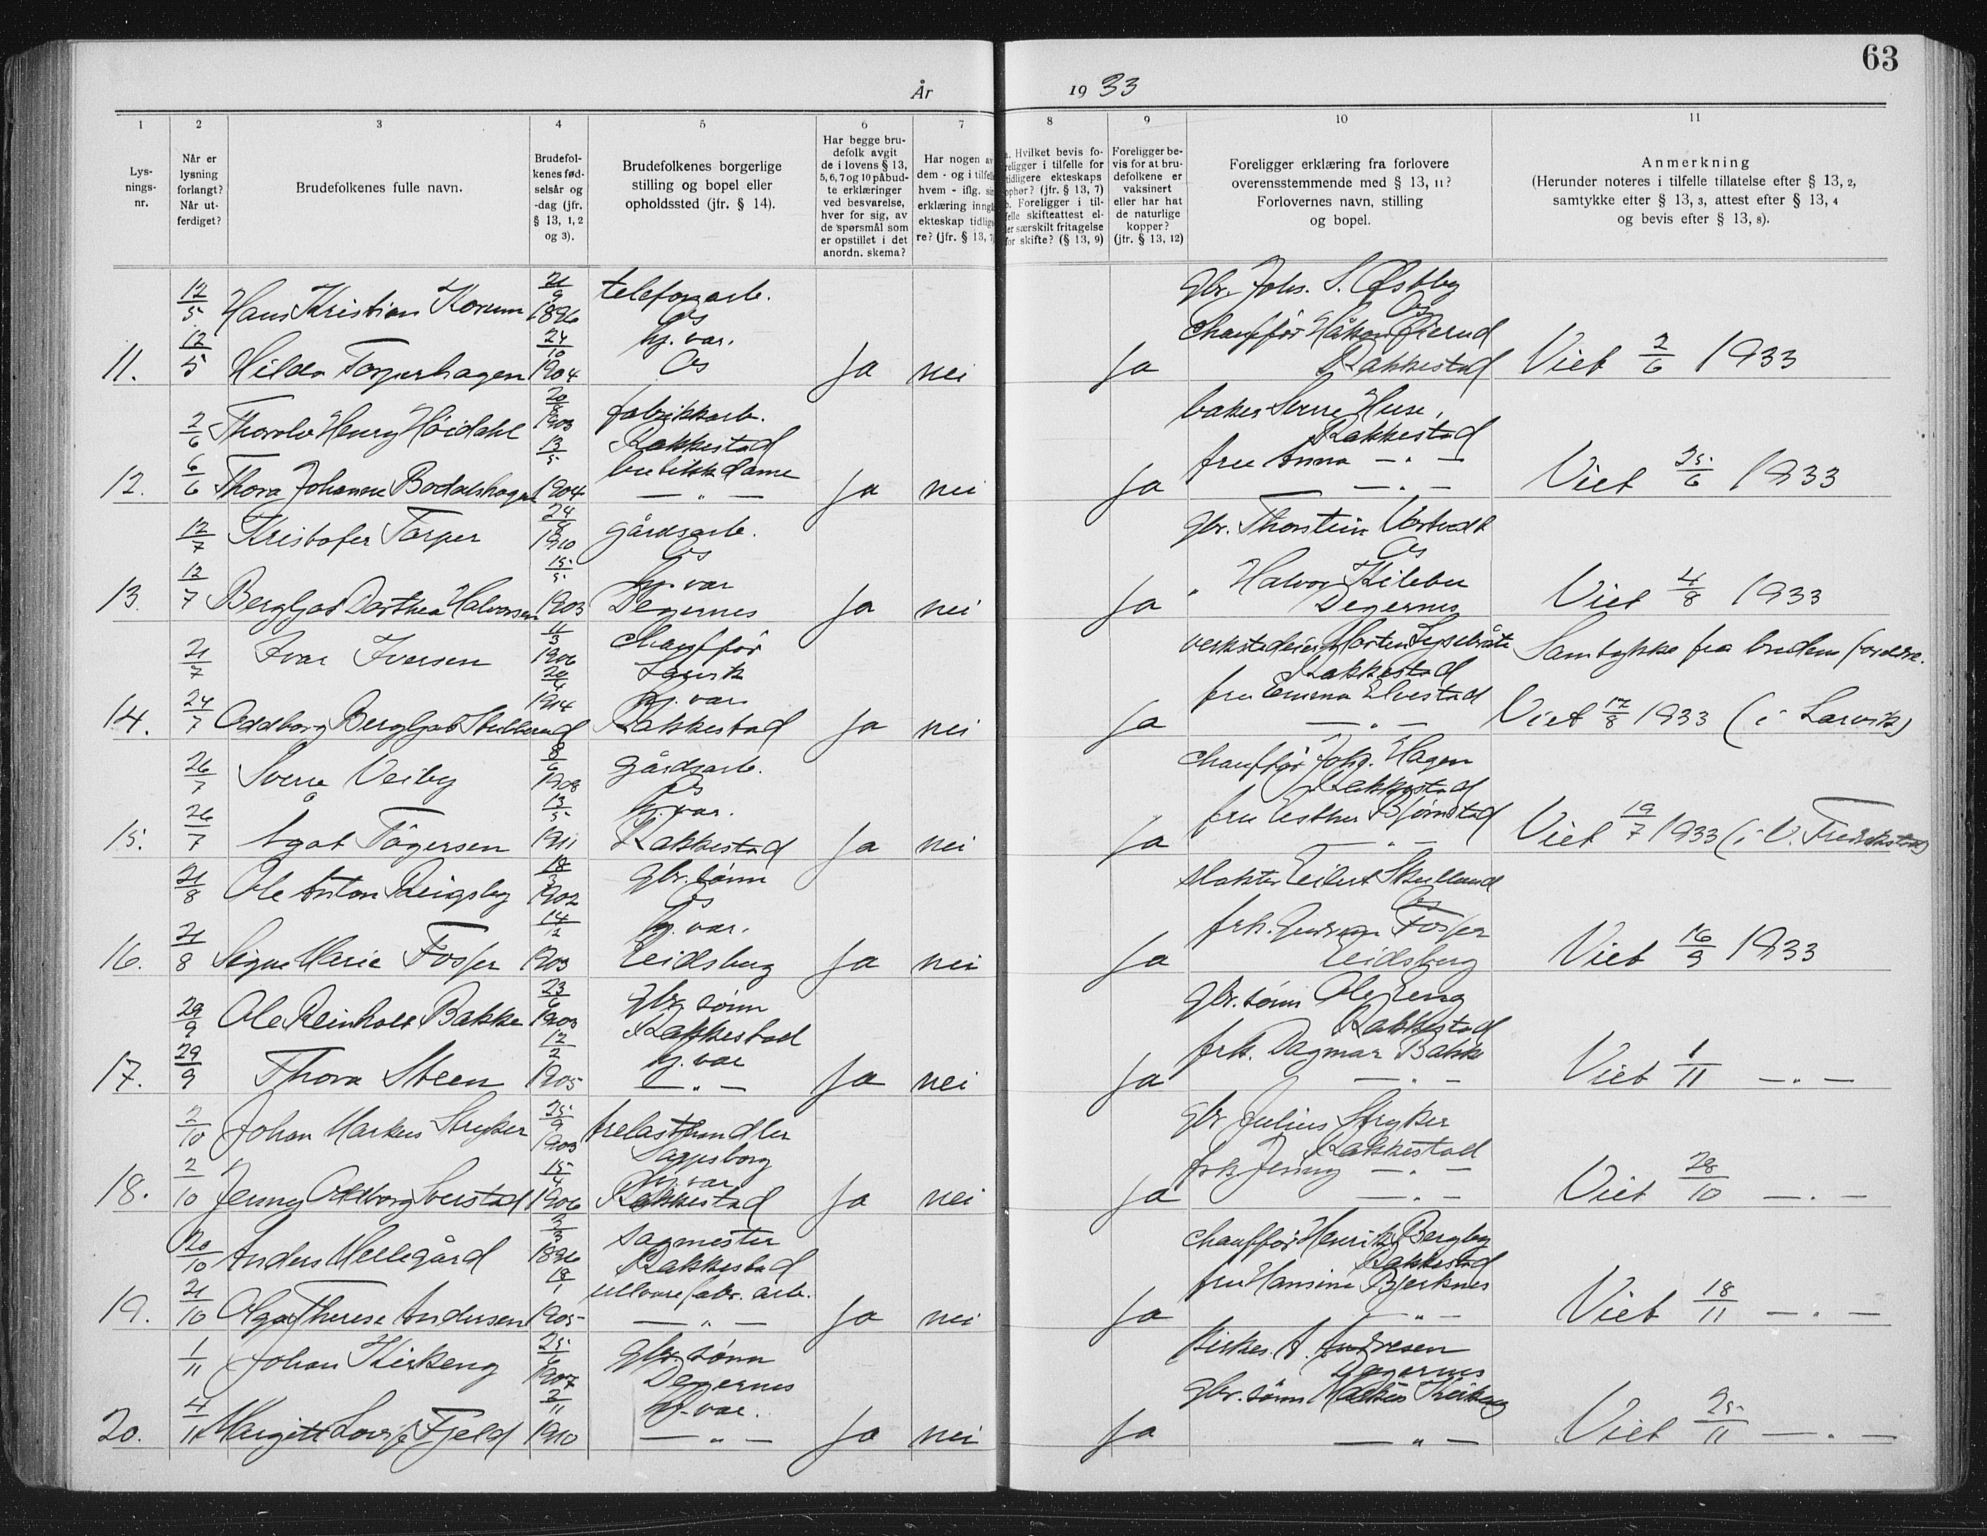 63
År 1933
1 2 3 4 5 6 7 8 9 10 11
Lys-
nings-
nr.
Når er
lysning
forlangt?
Når ut-
ferdiget?
Brudefolkenes fulle navn.
Brudefol-
kenes fød-
selsår og
-dag (jfr.
§ 13, 1, 2
og 3).
Brudefolkenes borgerlige
stilling og bopel eller
opholdssted (jfr. § 14).
Har begge bru-
defolk avgit
de i lovens § 13,
5, 6, 7 og 10 påbud-
te erklæringer
ved besvarelse,
hver for sig, av
de spørsmål som
er opstillet i det
anordn. skema?
Har nogen av
dem - og i tilfelle
hvem - iflg. sin
erklæring inngå
ekteskap tidlige
re? (jfr. § 13, 7
a. Hvilket bevis fo-
religger i tilfelle for
tidligere ekteskaps
ophør? (jfr. § 13, 7)
b. Foreligger i til-
felle skifteattest el-
ler særskilt fritagelse
for skifte? (§ 13, 9)
Foreligger be-
vis for at bru-
defolkene er
vaksinert
eller har hat
de naturlige
kopper?
(jfr. § 13, 12)
Foreligger erklæring fra forlovere
overensstemmende med § 13, 11?
Forlovernes navn, stilling
og bopel.
Anmerkning
(Herunder noteres i tilfelle tillatelse efter § 13, 2,
samtykke efter § 13, 3, attest efter § 13, 4
og bevis efter § 13, 8).
12/5 Hans Kristian Korum 21/9 1896 telefonarb. Os gbr. Johs. S. Østby Os
11. 12/5 Hilda Torperhagen 24/10 1904 hj. var. Os Ja nei Ja chauffør Håkon Rakkestad Viet 2/6 1933
2/6 Thorolv Henry Høidahl 1903 fabrikkarb. Rakkestad baker Sverre Huse, Rakkestad
12. 6/6 Thora Johanne 13/5 1904 butikkdame — „ — Ja nei Ja fru Anna — „ — — „ — Viet 25/6 1933
12/7 Kristofer Torper 24/8 1910 gårdsarb. Os gbr. Thorstein Os
13. 12/7 Bergljot Dorthea Halvorsen 15/5 1903 hj. var Degernes Ja nei Ja „ Halvor Kilebu Degernes Viet 4/8 1933
21/7 Ivar Iversen 4/3 1906 chauffør Larvik verkstedeier Morten Rakkestad Samtykke fra brudens foreldre.
14. 24/7 Oddborg Bergljot 1914 hj. var. Rakkestad Ja nei Ja fru Emma Elvestad — „ — Viet 12/8 1933 (i Larvik)
26/7 Sverre Veiby 8/6 1908 gårdsarb. Os chauffør Joh. Hagen Rakkestad
15. 26/7 Ågot Tögersen 13/5 1911 hj. var. Rakkestad Ja nei Ja fru Esther Bjørnstad — „ — Viet 19/7 1933 (i V. Fredrikstad)
21/8 Ole Anton 18/3 1902 gbr. sønn Os slakter Eilert Skulland Os
16. 21/8 Signe Marie Fosser 14/12 1903 hj. var. Eidsberg Ja nei Ja frk. Gudrun Fosser Eidsberg Viet 16/9 1933
29/9 Ole Reinholt Bakke 23/6 1903 gbr. sønn Rakkestad gbr. sønn Ole Eng Rakkestad
17. 29/9 Thora Steen 12/2 1905 hj. var — „ — Ja nei Ja frk. Dagmar Bakke — „ — Viet 1/11 — „ —
2/10 Johan Markus Stryker 25/9 1903 trelasthandler Sarpsborg gbr Julius Stryker Rakkestad
18. 2/10 Jenny Oddborg Sverstad 15/4 1906 hj. var Rakkestad Ja nei Ja frk Jenny — „ — — „ — Viet 28/10 — „ —
20/10 Anders Mellegård 3/3 1896 sagmester Rakkestad chauffør Henrik Bergby Rakkestad
19. 21/10 Olga Therese Andersen 18/1 1905 ullvarefabr. arb. — „ — Ja nei Ja fru Hansine Bjerknes — „ — Viet 18/11 — „ —
1/11 Johan Kirkeng 25/6 1907 gbr. sønn Degernes kirkes. A. Andresen Degernes
20. 4/11 Margitt Lovise Fjeld 2/11 1910 hj. var. — „ — Ja nei Ja gbr. sønn Markus Kirkeng — „ — Viet 25/11 — „ —